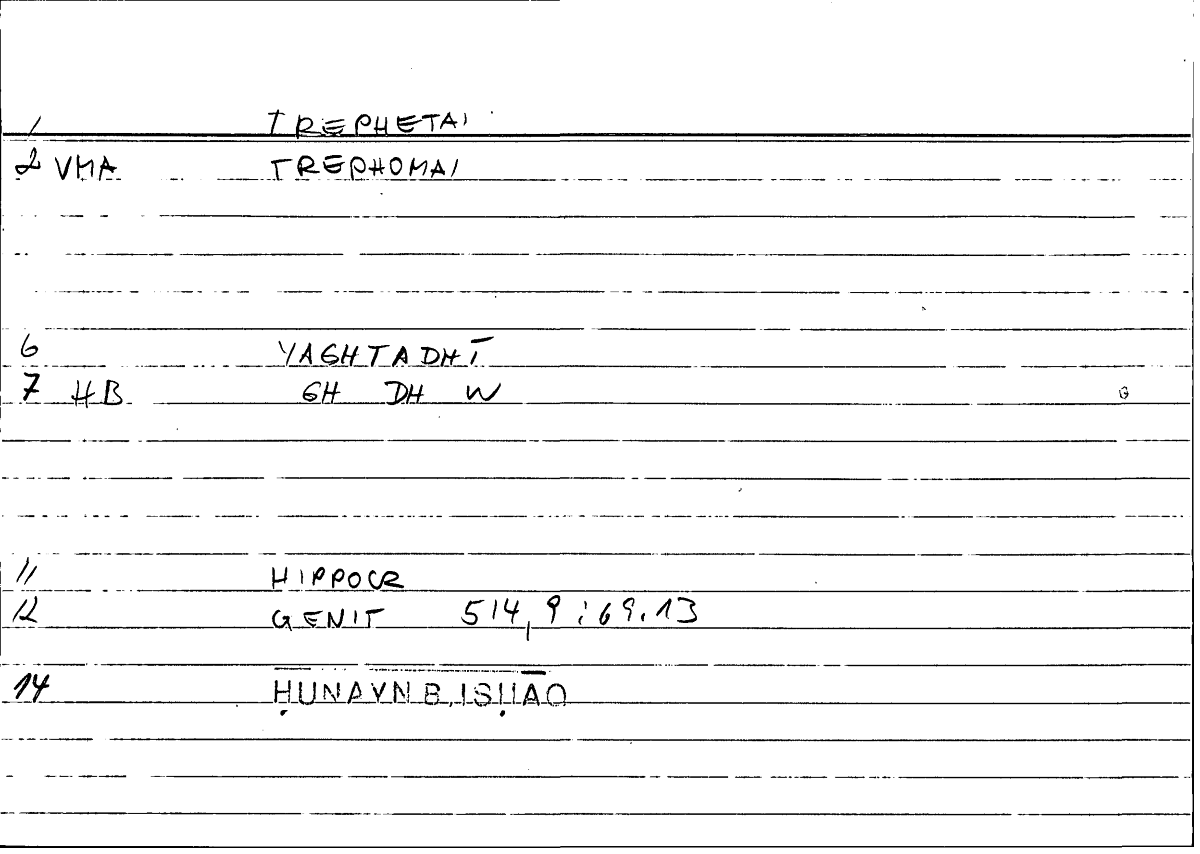 1 TREPHETAI
2 VMA TREPHOMAI
6 YAGHTADHĪ
7 HB GH DH W
11 HIPPOCR
12 GENIT 514,9 : 69.13
14 ḤUNAYN B. ISḤĀQ